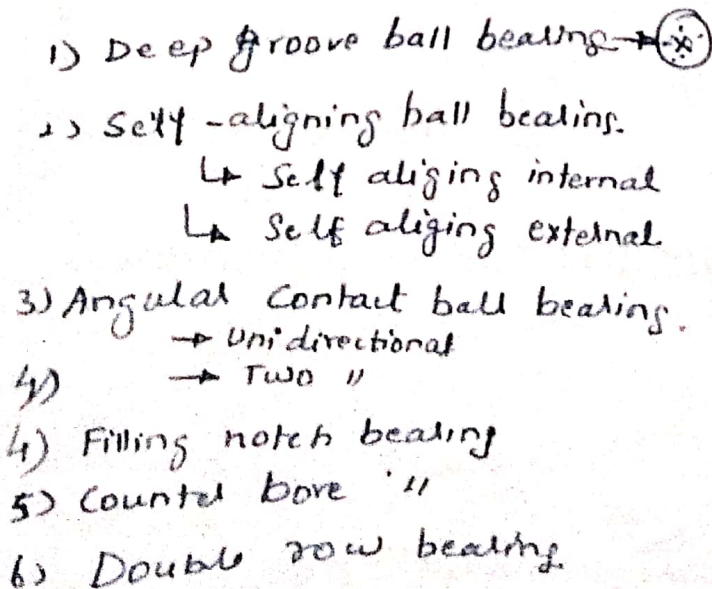 1) Deep groove ball bearing →
2) Self-aligning ball bearing.
↳ Self aliging internal
↳ Self aliging external
3) Angular Contact ball bearing.
→ Unidirectional
4) → Two "
4) Filling notch bearing
5) Counter bore "
6) Double row bearing